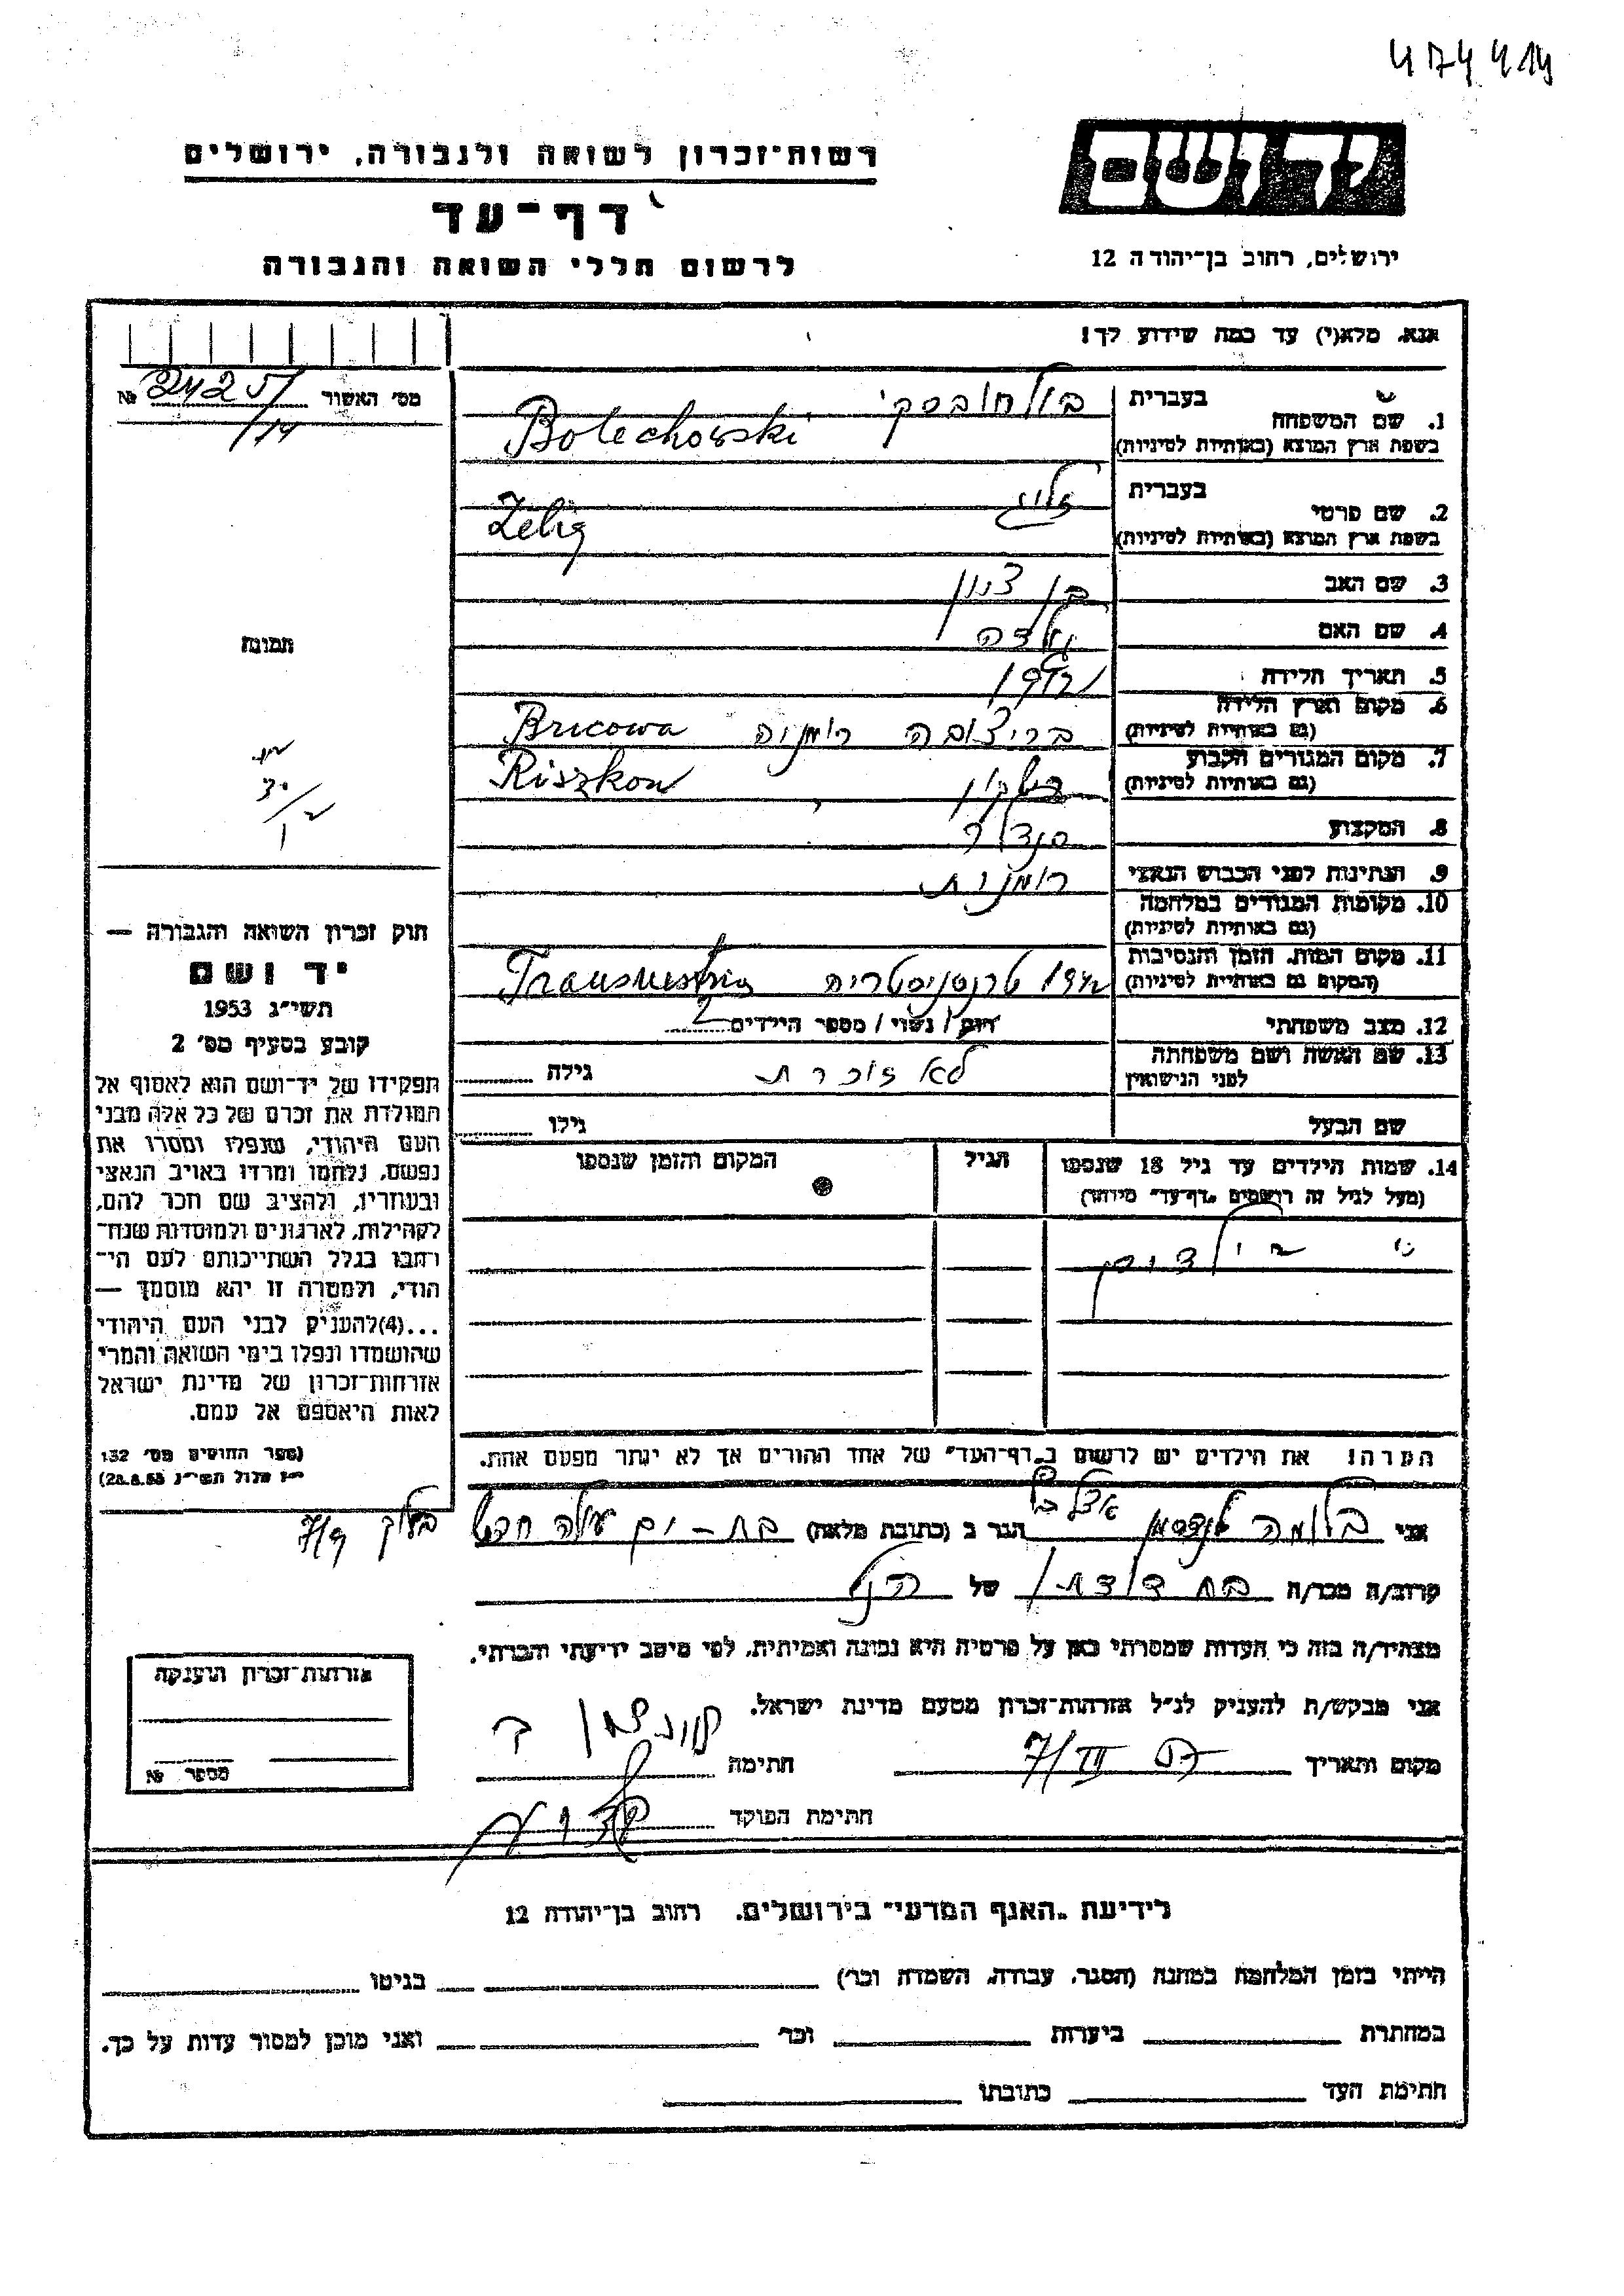 474414
יד ושם
רשות־זכרון לשואה ולגבורה, ירושלים
דף־עד
לרשום חללי השואה והגבורה
ירושלים, רחוב בן־יהודה 12
אנא, מלא(י) עד כמה שידוע לך!
מס' האשור № 24251
/14
1. שם המשפחה בעברית בולחובסקי
בשפת ארץ המוצא (באותיות לטיניות) Bolechowski
2. שם פרטי בעברית זליג
בשפת ארץ המוצא (באותיות לטיניות) Zelig
3. שם האב בן ציון
4. שם האם
5. תאריך הלידה
6. מקום וארץ הלידה בריצובה רומניה Bricowa
(גם באותיות לטיניות)
7. מקום המגורים הקבוע רישקון Riszkon
(גם באותיות לטיניות)
8. המקצוע סנדלר
9. הנתינות לפני הכבוש הנאצי רומנית
10. מקומות המגורים במלחמה
(גם באותיות לטיניות)
11. מקום המות, הזמן והנסיבות 1942 טרנסניסטריה Transnistria
(המקום גם באותיות לטיניות)
12. מצב משפחתי רווק / נשוי / מספר הילדים 2
13. שם האשה ושם משפחתה לא זוכרת גילה
לפני הנישואין
שם הבעל גילו
14. שמות הילדים עד גיל 18 שנספו הגיל המקום והזמן שנספו
(מעל לגיל זה רושמים „דף־עד" מיוחד)
2 ילדים
תמונה
חוק זכרון השואה והגבורה —
יד ושם
תשי״ג 1953
קובע בסעיף מס' 2
תפקידו של יד־ושם הוא לאסוף אל
המולדת את זכרם של כל אלה מבני
העם היהודי, שנפלו ומסרו את
נפשם, נלחמו ומרדו באויב הנאצי
ובעוזריו, ולהציב שם וזכר להם,
לקהילות, לארגונים ולמוסדות שנח־
רבו בגלל השתייכותם לעם הי־
הודי, ולמטרה זו יהא מוסמך —
...(4)להעניק לבני העם היהודי
שהושמדו ונפלו בימי השואה והמרי
אזרחות־זכרון של מדינת ישראל
לאות היאספם אל עמם.
(ספר החוקים מס' 132
י״ז אלול תשי״ג 28.8.53)
הערה! את הילדים יש לרשום ב„דף־העד" של אחד ההורים אך לא יותר מפעם אחת.
אני בלומה הגר ב (כתובת מלאה) בת־ים בלוק 7/9
קרוב/ה מכר/ה בת דודתו של הנ״ל
מצהיר/ה בזה כי העדות שמסרתי כאן על פרטיה היא נכונה ואמיתית, לפי מיטב ידיעתי והכרתי.
אני מבקש/ת להעניק לנ״ל אזרחות־זכרון מטעם מדינת ישראל.
מקום ותאריך 7/III חתימה
חתימת הפוקד
אזרחות־זכרון הוענקה
מספר №
לידיעת „האגף המדעי" בירושלים, רחוב בן־יהודה 12
הייתי בזמן המלחמה במחנה (הסגר, עבודה, השמדה וכו') בגיטו
במחתרת ביערות וכו' ואני מוכן למסור עדות על כך.
חתימת העד כתובתו